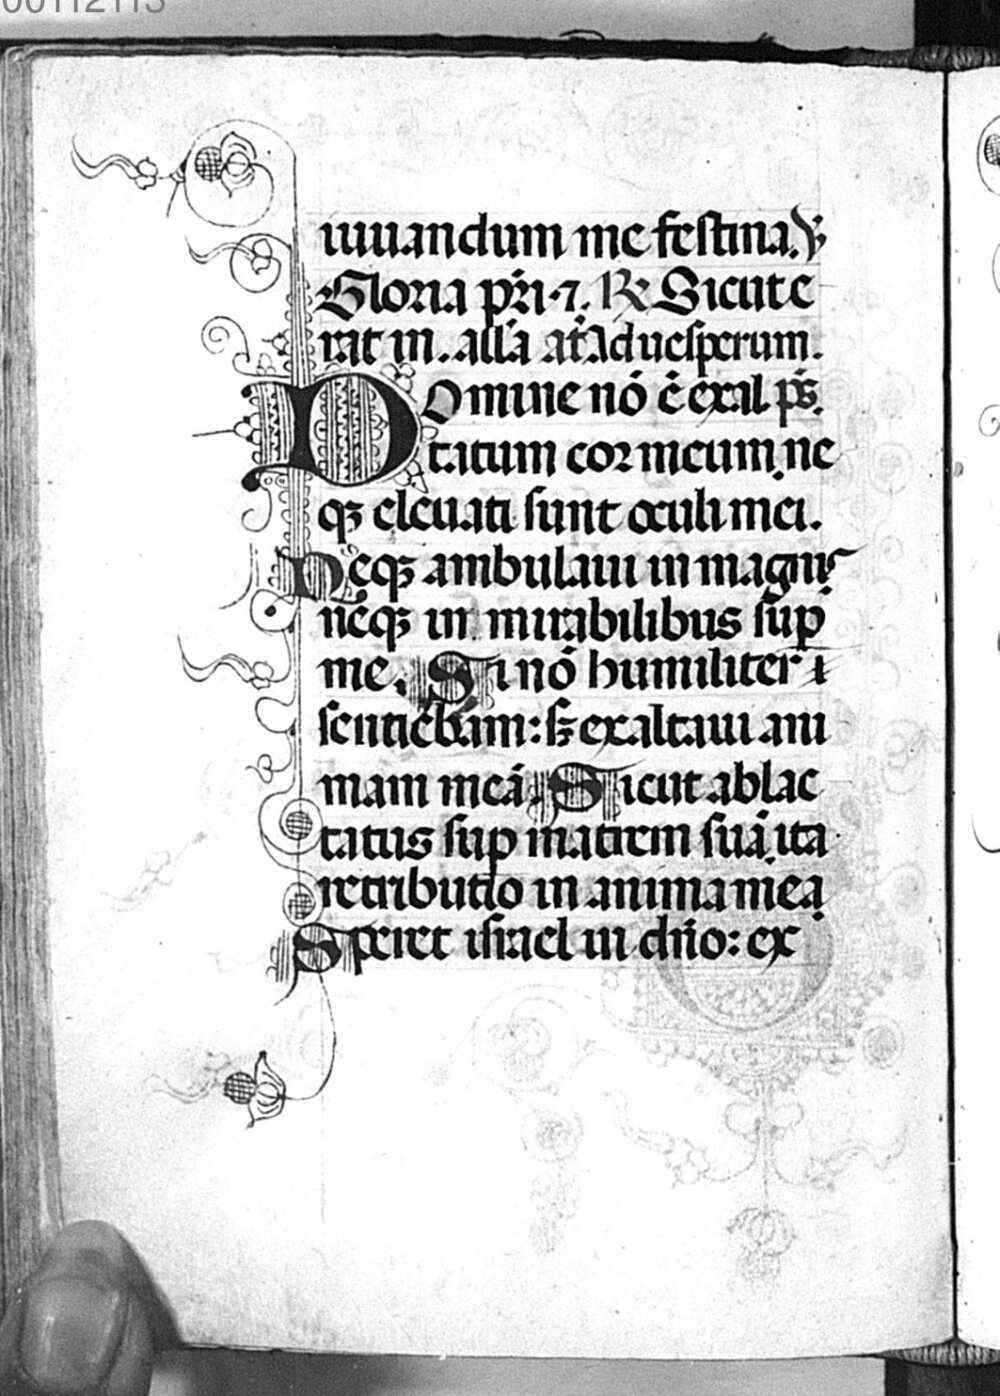 00112113
iuuandum me festina. ℣
Gloria pr̄i.⁊. ℟ Sicut e
rat in. all'a at̄. Ad uesperum.
Domine nō ē exal ps̄.
tatum cor meum. ne
qꝫ eleuati sunt oculi mei.
Neqꝫ ambulaui in magnis
neqꝫ in mirabilibus sup̄
me. Si nō humiliter
sentiebam: sꝫ exaltaui ani
mam meā. Sicut ablac
tatus sup̄ matrem suā. ita
retributio in anima mea
Speret israel in dn̄o: ex